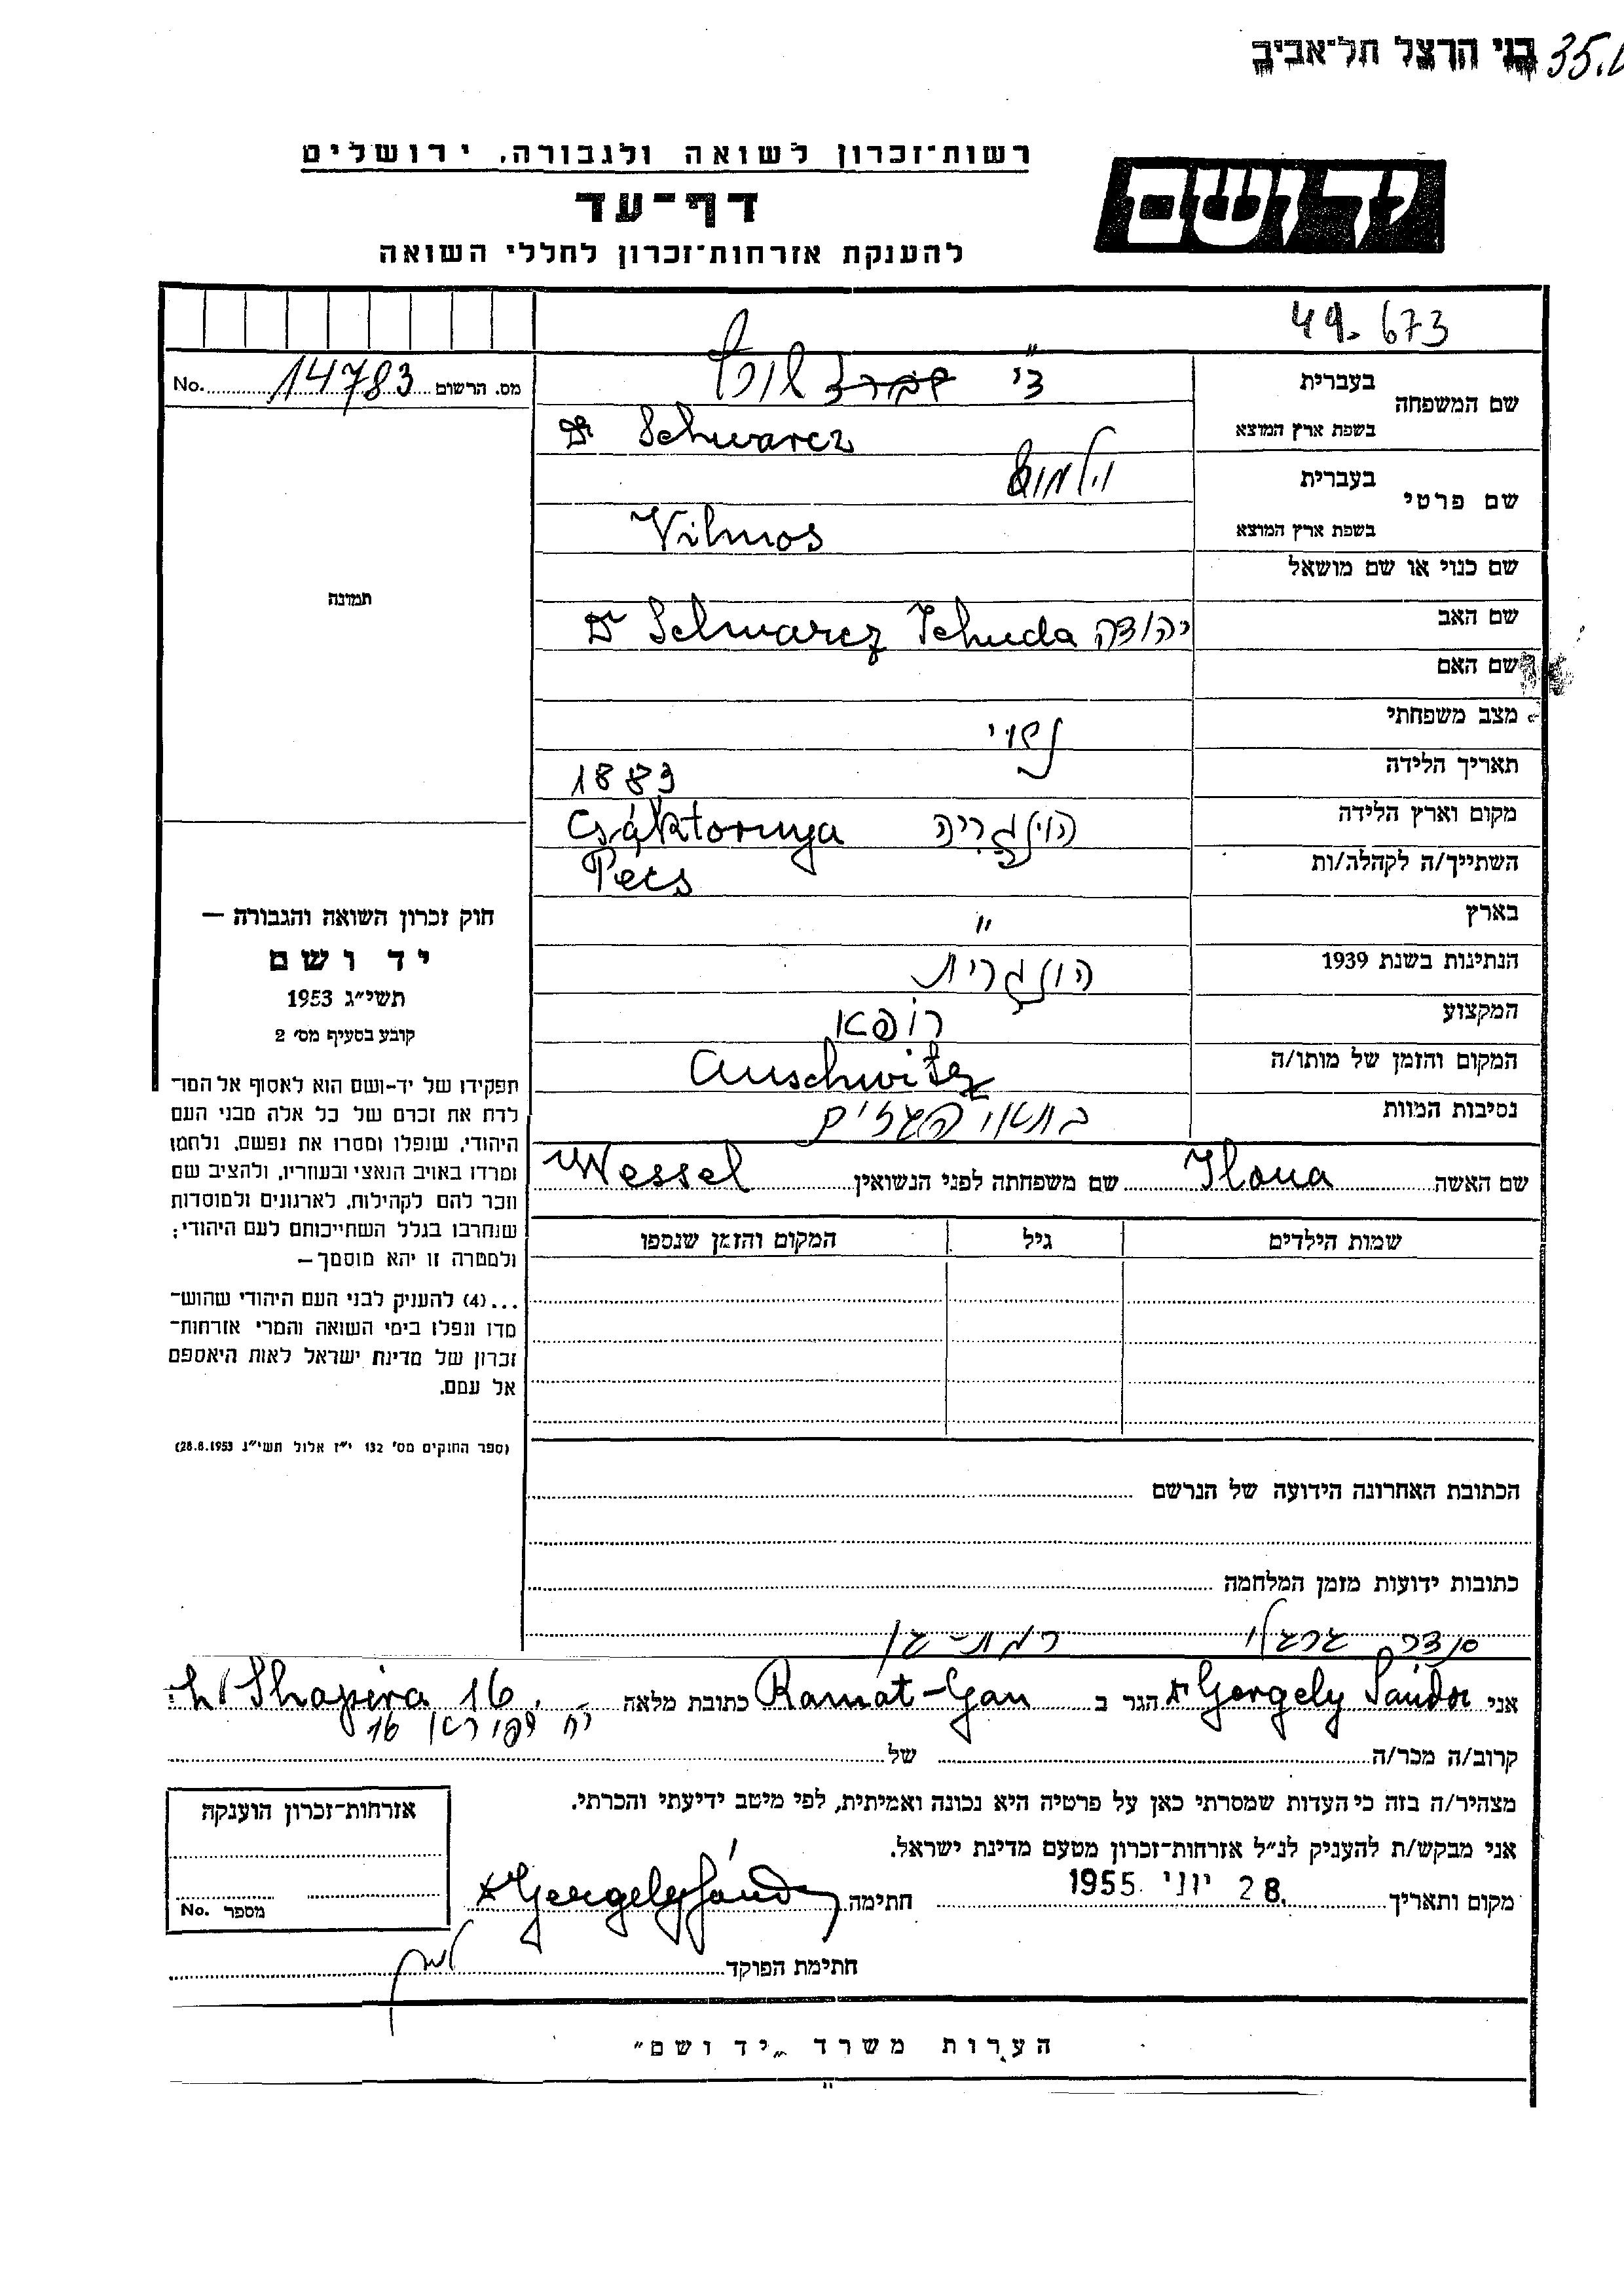 בני הרצל תל-אביב 35.
רשות-זכרון לשואה ולגבורה, ירושלים
יד ושם
דף-עד
להענקת אזרחות-זכרון לחללי השואה
49.673
No. 14783 מס. הרשום
שם המשפחה בעברית ד״ר שורץ
בשפת ארץ המוצא Dr Schwarcz
שם פרטי בעברית וילמוש
בשפת ארץ המוצא Vilmos
שם כנוי או שם מושאל
שם האב יהודה Dr Schwarcz Jehuda
שם האם
מצב משפחתי נשוי
תאריך הלידה 1883
מקום וארץ הלידה הונגריה Csáktornya
השתייך/ה לקהלה/ות Pécs
בארץ "
הנתינות בשנת 1939 הונגרית
המקצוע רופא
המקום והזמן של מותו/ה Auschwitz
נסיבות המוות בתאי הגזים
שם האשה Ilona שם משפחתה לפני הנשואין Wessel
שמות הילדים גיל המקום והזמן שנספו
תמונה
חוק זכרון השואה והגבורה —
יד ושם
תשי״ג 1953
קובע בסעיף מס׳ 2
תפקידו של יד-ושם הוא לאסוף אל המו־
לדת את זכרם של כל אלה מבני העם
היהודי, שנפלו ומסרו את נפשם, נלחמו
ומרדו באויב הנאצי ובעוזריו, ולהציב שם
וזכר להם לקהילות, לארגונים ולמוסדות
שנחרבו בגלל השתייכותם לעם היהודי;
ולמטרה זו יהא מוסמך —
...(4) להעניק לבני העם היהודי שהוש־
מדו ונפלו בימי השואה והמרי אזרחות־
זכרון של מדינת ישראל לאות היאספם
אל עמם.
(ספר החוקים מס׳ 132 י״ז אלול תשי״ג 28.8.1953)
הכתובת האחרונה הידועה של הנרשם
כתובות ידועות מזמן המלחמה
סנדר גרגלי רמת-גן
אני Dr Gergely Sándor הגר ב Ramat-Gan כתובת מלאה Shapira 16.
רח שפירא 16
קרוב/ה מכר/ה של
מצהיר/ה בזה כי העדות שמסרתי כאן על פרטיה היא נכונה ואמיתית, לפי מיטב ידיעתי והכרתי.
אני מבקש/ת להעניק לנ״ל אזרחות-זכרון מטעם מדינת ישראל.
מקום ותאריך 28. יוני 1955 חתימה Dr Gergely Sándor
חתימת הפוקד
אזרחות-זכרון הוענקה
מספר No.
הערות משרד „יד ושם״